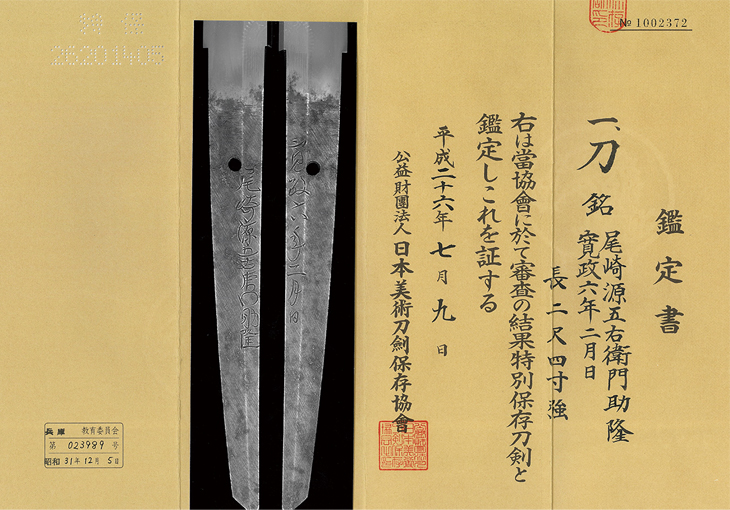 № 1002372
鑑定書
一、刀 銘 尾崎源五右衛門助隆
寛政六年二月日
長二尺四寸強
右は當協會に於て審査の結果特別保存刀剣と
鑑定しこれを証する
平成二十六年七月九日
公益財團法人 日本美術刀劍保存協會
寛政六年二月日
尾崎源五右衛門助隆
26201405
兵庫 教育委員会
第 023989 号
昭和 31年 12月 5日